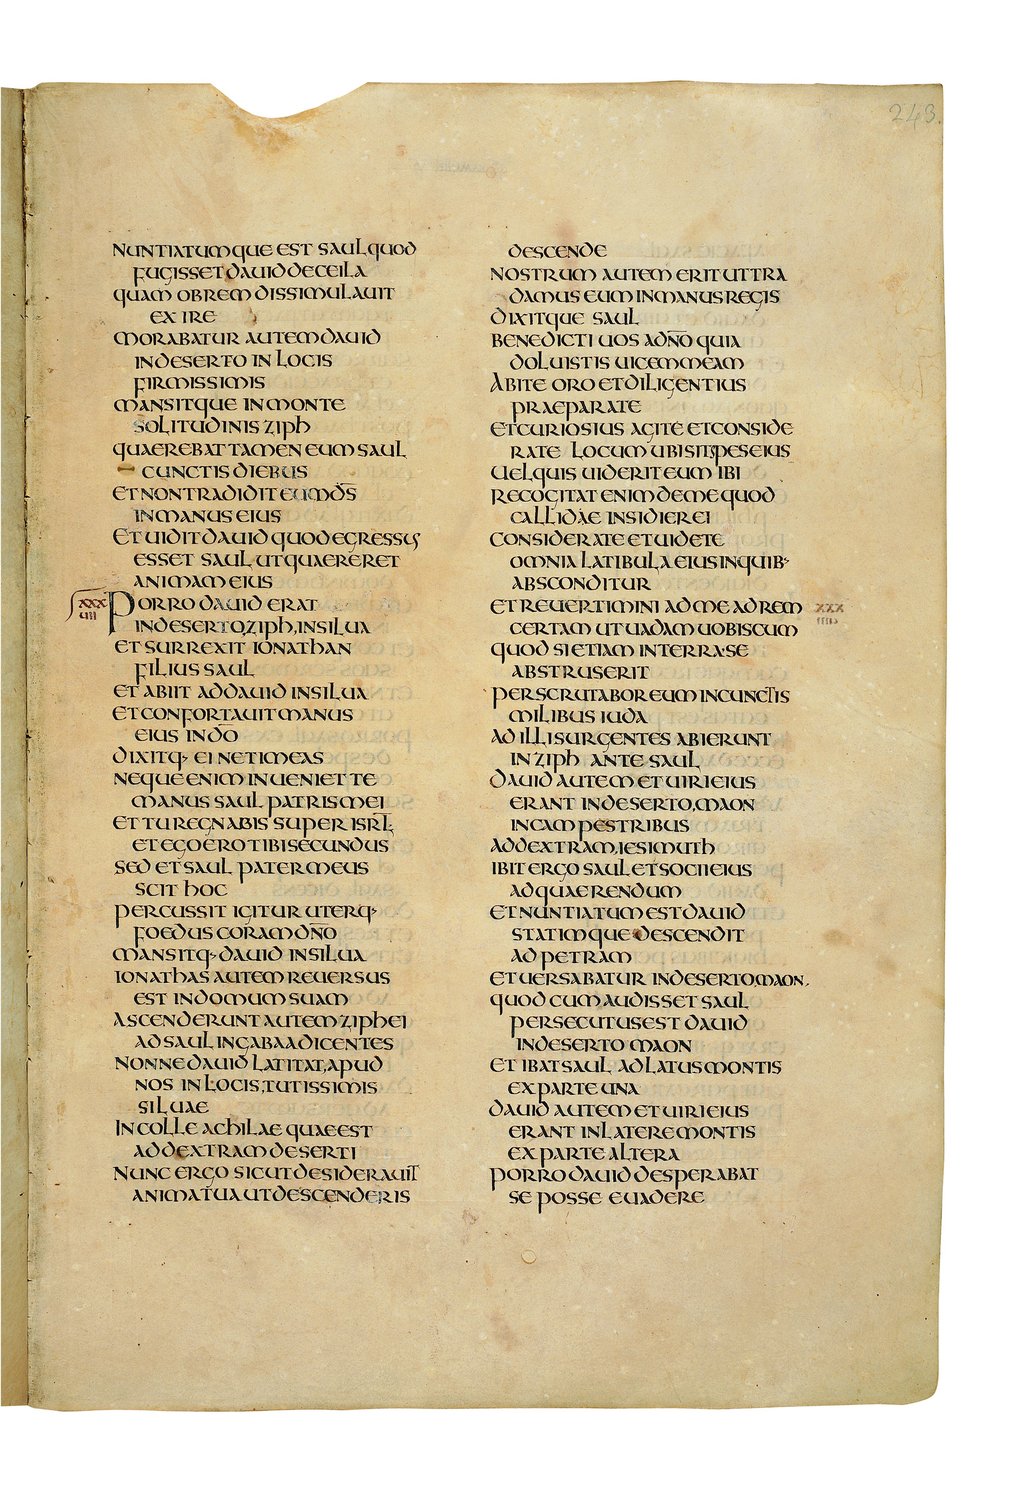 243.
NUNTIATUMQUE EST SAUL QUOD
FUGISSET DAUID DE CEILA
QUAM OBREM DISSIMULAUIT
EXIRE
MORABATUR AUTEM DAUID
IN DESERTO IN LOCIS
FIRMISSIMIS
MANSITQUE IN MONTE
SOLITUDINIS ZIPH
QUAEREBAT TAMEN EUM SAUL
CUNCTIS DIEBUS
ET NON TRADIDIT EUM D̅S̅
IN MANUS EIUS
ET UIDIT DAUID QUOD EGRESSUS
ESSET SAUL UT QUAERERET
ANIMAM EIUS
XXX
IIII
PORRO DAUID ERAT
IN DESERTO, ZIPH, IN SILUA
ET SURREXIT IONATHAN
FILIUS SAUL
ET ABIIT AD DAUID IN SILUA
ET CONFORTAUIT MANUS
EIUS IN D̅O̅
DIXITQ· EI NE TIMEAS
NEQUE ENIM INUENIET TE
MANUS SAUL PATRIS MEI
ET TU REGNABIS SUPER ISRL̅
ET EGO ERO TIBI SECUNDUS
SED ET SAUL PATER MEUS
SCIT HOC
PERCUSSIT IGITUR UTERQ·
FOEDUS CORAM DN̅O
MANSITQ· DAUID IN SILUA
IONATHAS AUTEM REUERSUS
EST IN DOMUM SUAM
ASCENDERUNT AUTEM ZIPHEI
AD SAUL IN GABAA DICENTES
NONNE DAUID LATITAT, APUD
NOS IN LOCIS, TUTISSIMIS
SILUAE
IN COLLE ACHILAE QUAE EST
AD DEXTRAM DESERTI
NUNC ERGO SICUT DESIDERAUIT
ANIMA TUA UT DESCENDERIS
DESCENDE
NOSTRUM AUTEM ERIT UT TRA
DAMUS EUM IN MANUS REGIS
DIXITQUE SAUL
BENEDICTI UOS A DN̅O QUIA
DOLUISTIS UICEM MEAM
ABITE ORO ET DILIGENTIUS
PRAEPARATE
ET CURIOSIUS AGITE ET CONSIDE
RATE LOCUM UBI SIT PES EIUS
UEL QUIS UIDERIT EUM IBI
RECOGITAT ENIM DE ME QUOD
CALLIDAE INSIDIER EI
CONSIDERATE ET UIDETE
OMNIA LATIBULA EIUS IN QUIB·
ABSCONDITUR
ET REUERTIMINI AD ME AD REM
CERTAM UT UADAM UOBISCUM
QUOD SI ETIAM IN TERRA·SE
ABSTRUSERIT
PERSCRUTABOR EUM IN CUNCTIS
MILIBUS IUDA
AD ILLI SURGENTES ABIERUNT
IN ZIPH ANTE SAUL
DAUID AUTEM ET UIRI EIUS
ERANT IN DESERTO, MAON
IN CAMPESTRIBUS
AD DEXTRAM, IESIMUTH
IBIT ERGO SAUL ET SOCII EIUS
AD QUAERENDUM
ET NUNTIATUM EST DAUID
STATIMQUE DESCENDIT
AD PETRAM
ET UERSABATUR IN DESERTO, MAON,
QUOD CUM AUDISSET SAUL
PERSECUTUS EST DAUID
IN DESERTO MAON
ET IBAT SAUL AD LATUS MONTIS
EX PARTE UNA
DAUID AUTEM ET UIRI EIUS
ERANT IN LATERE MONTIS
EX PARTE ALTERA
PORRO DAUID DESPERABAT
SE POSSE EUADERE